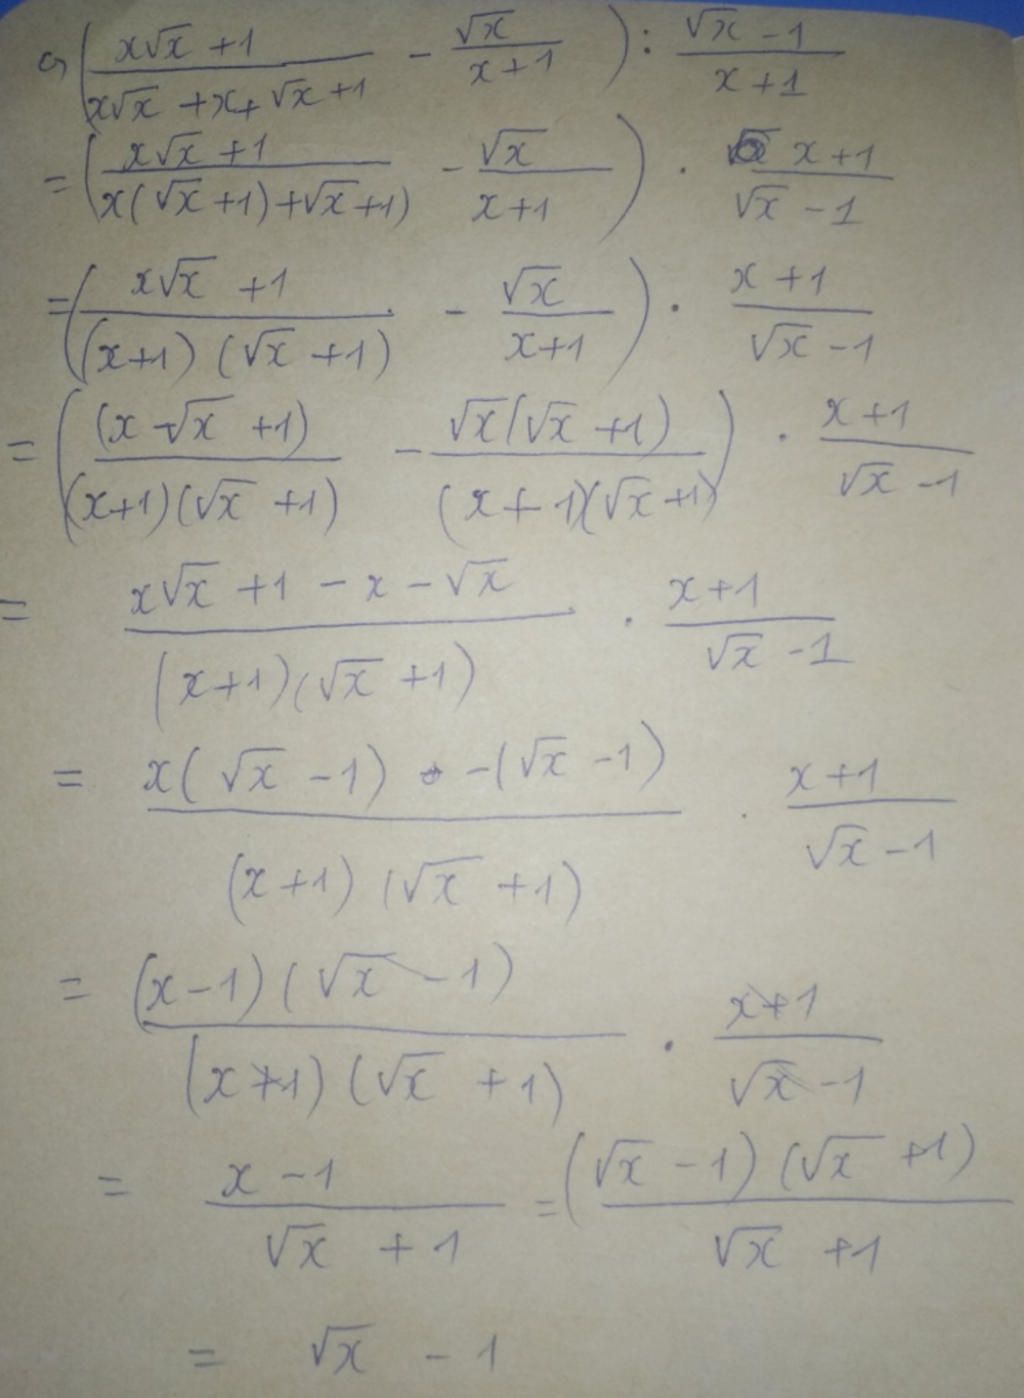 a) ((x√x + 1)/(x√x + x + √x + 1) - √x/(x+1)) : (√x - 1)/(x+1)
= ((x√x + 1)/(x(√x + 1) + √x + 1) - √x/(x+1)) · (x+1)/(√x - 1)
= ((x√x + 1)/((x+1)(√x + 1)) - √x/(x+1)) · (x+1)/(√x - 1)
= ((x - √x + 1)/((x+1)(√x + 1)) - √x(√x + 1)/((x+1)(√x + 1))) · (x+1)/(√x - 1)
= (x√x + 1 - x - √x)/((x+1)(√x + 1)) · (x+1)/(√x - 1)
= (x(√x - 1) - (√x - 1))/((x+1)(√x + 1)) · (x+1)/(√x - 1)
= ((x - 1)(√x - 1))/((x+1)(√x + 1)) · (x+1)/(√x - 1)
= (x - 1)/(√x + 1) = ((√x - 1)(√x + 1))/(√x + 1)
= √x - 1